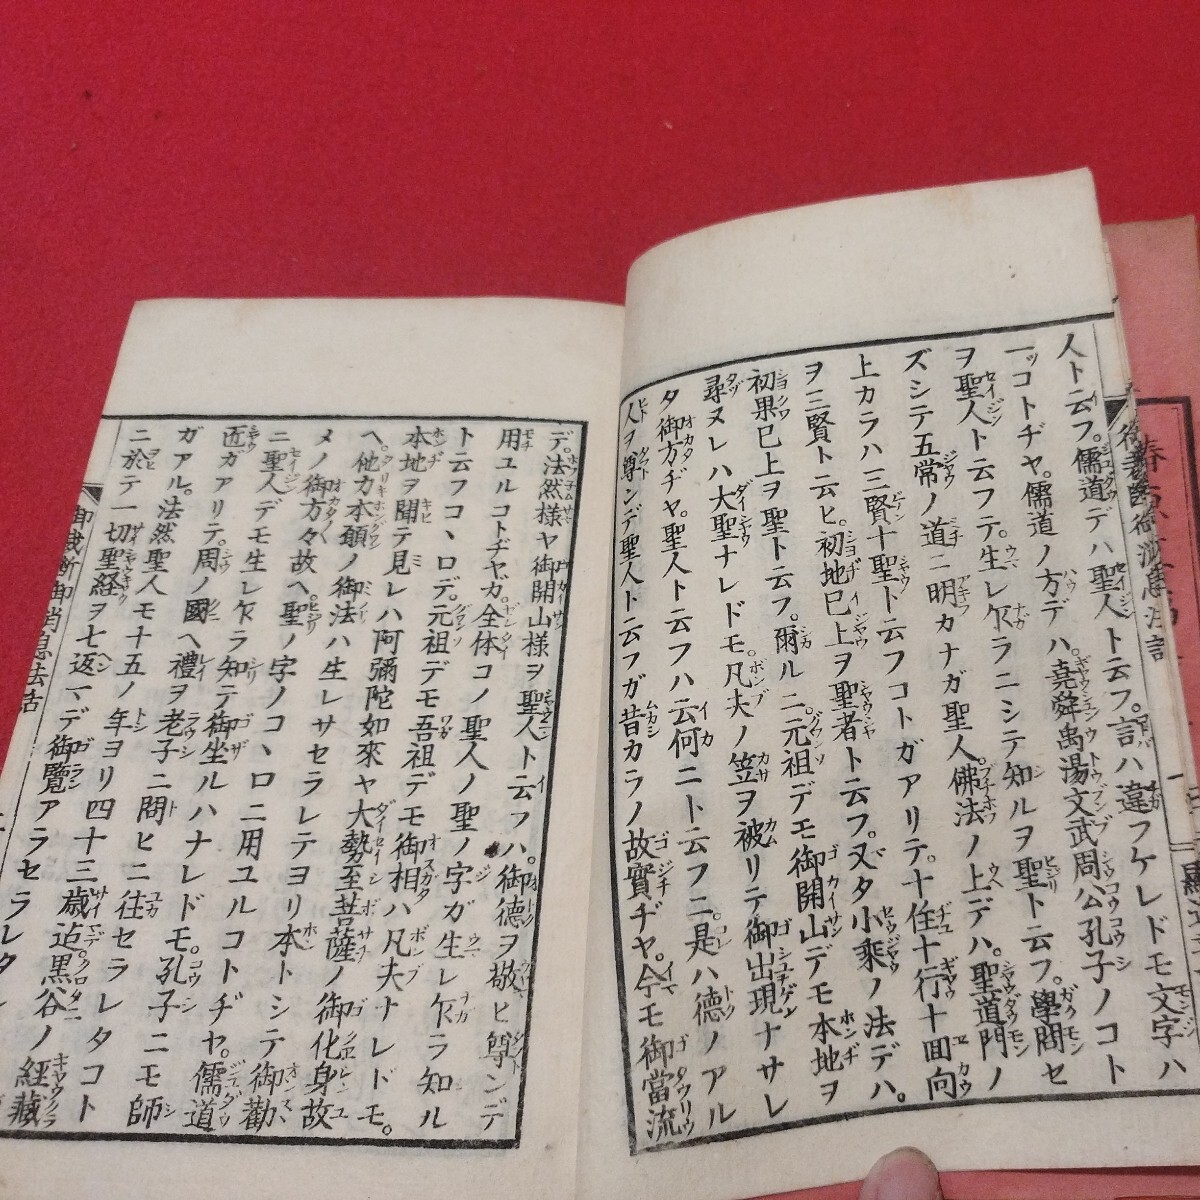 人ト云フ。儒道デハ聖人ト云フ。言ハ違フケレドモ文字ハ
一ッコトヂヤ。儒道ノ方デハ。堯舜禹湯文武周公孔子ノコト
ヲ聖人ト云フテ。生レ乍ラニシテ知ルヲ聖ト云フ。學問セ
ズシテ五常ノ道ニ明カナガ聖人。佛法ノ上デハ。聖道門ノ
上カラハ三賢十聖ト云フコトガアリテ。十住十行十回向
ヲ三賢ト云ヒ。初地已上ヲ聖者ト云フ。又タ小乘ノ法デハ。
初果已上ヲ聖ト云フ。爾ルニ。元祖デモ御開山デモ本地ヲ
尋ヌレハ大聖ナレドモ。凡夫ノ笠ヲ被リテ御出現ナサレ
タ御方ヂヤ。聖人ト云フハ云何ニト云フニ。是ハ德ノアル
人ヲ尊ンデ聖人ト云フガ昔カラノ故實ヂヤ。今モ御當流
デ。法然様ヤ御開山様ヲ聖人ト云フハ。御德ヲ敬ヒ尊ンデ
用ユルコトヂヤガ。全体コノ聖人ノ聖ノ字ガ生レ乍ラ知ル
ト云フコヽロデ。元祖デモ吾祖デモ御相ハ凡夫ナレドモ。
本地ヲ聞テ見レハ阿彌陀如來ヤ大勢至菩薩ノ御化身故
ヘ。他力本願ノ御法ハ生レサセラレテヨリ本トシテ御勸
メノ御方々故ヘ聖ノ字ノコヽロニ用ユルコトヂヤ。儒道
ニ聖人デモ生レ乍ラ知テ御坐ルハナレドモ。孔子ニモ師
匠ガアリテ。周ノ國ヘ禮ヲ老子ニ問ヒニ往セラレタコト
ガアル。法然聖人モ十五ノ年ヨリ四十三歳迠黒谷ノ經藏
ニ於テ一切聖經ヲ七返ヽデ御覽アラセラレタ
御裁斷御消息法話